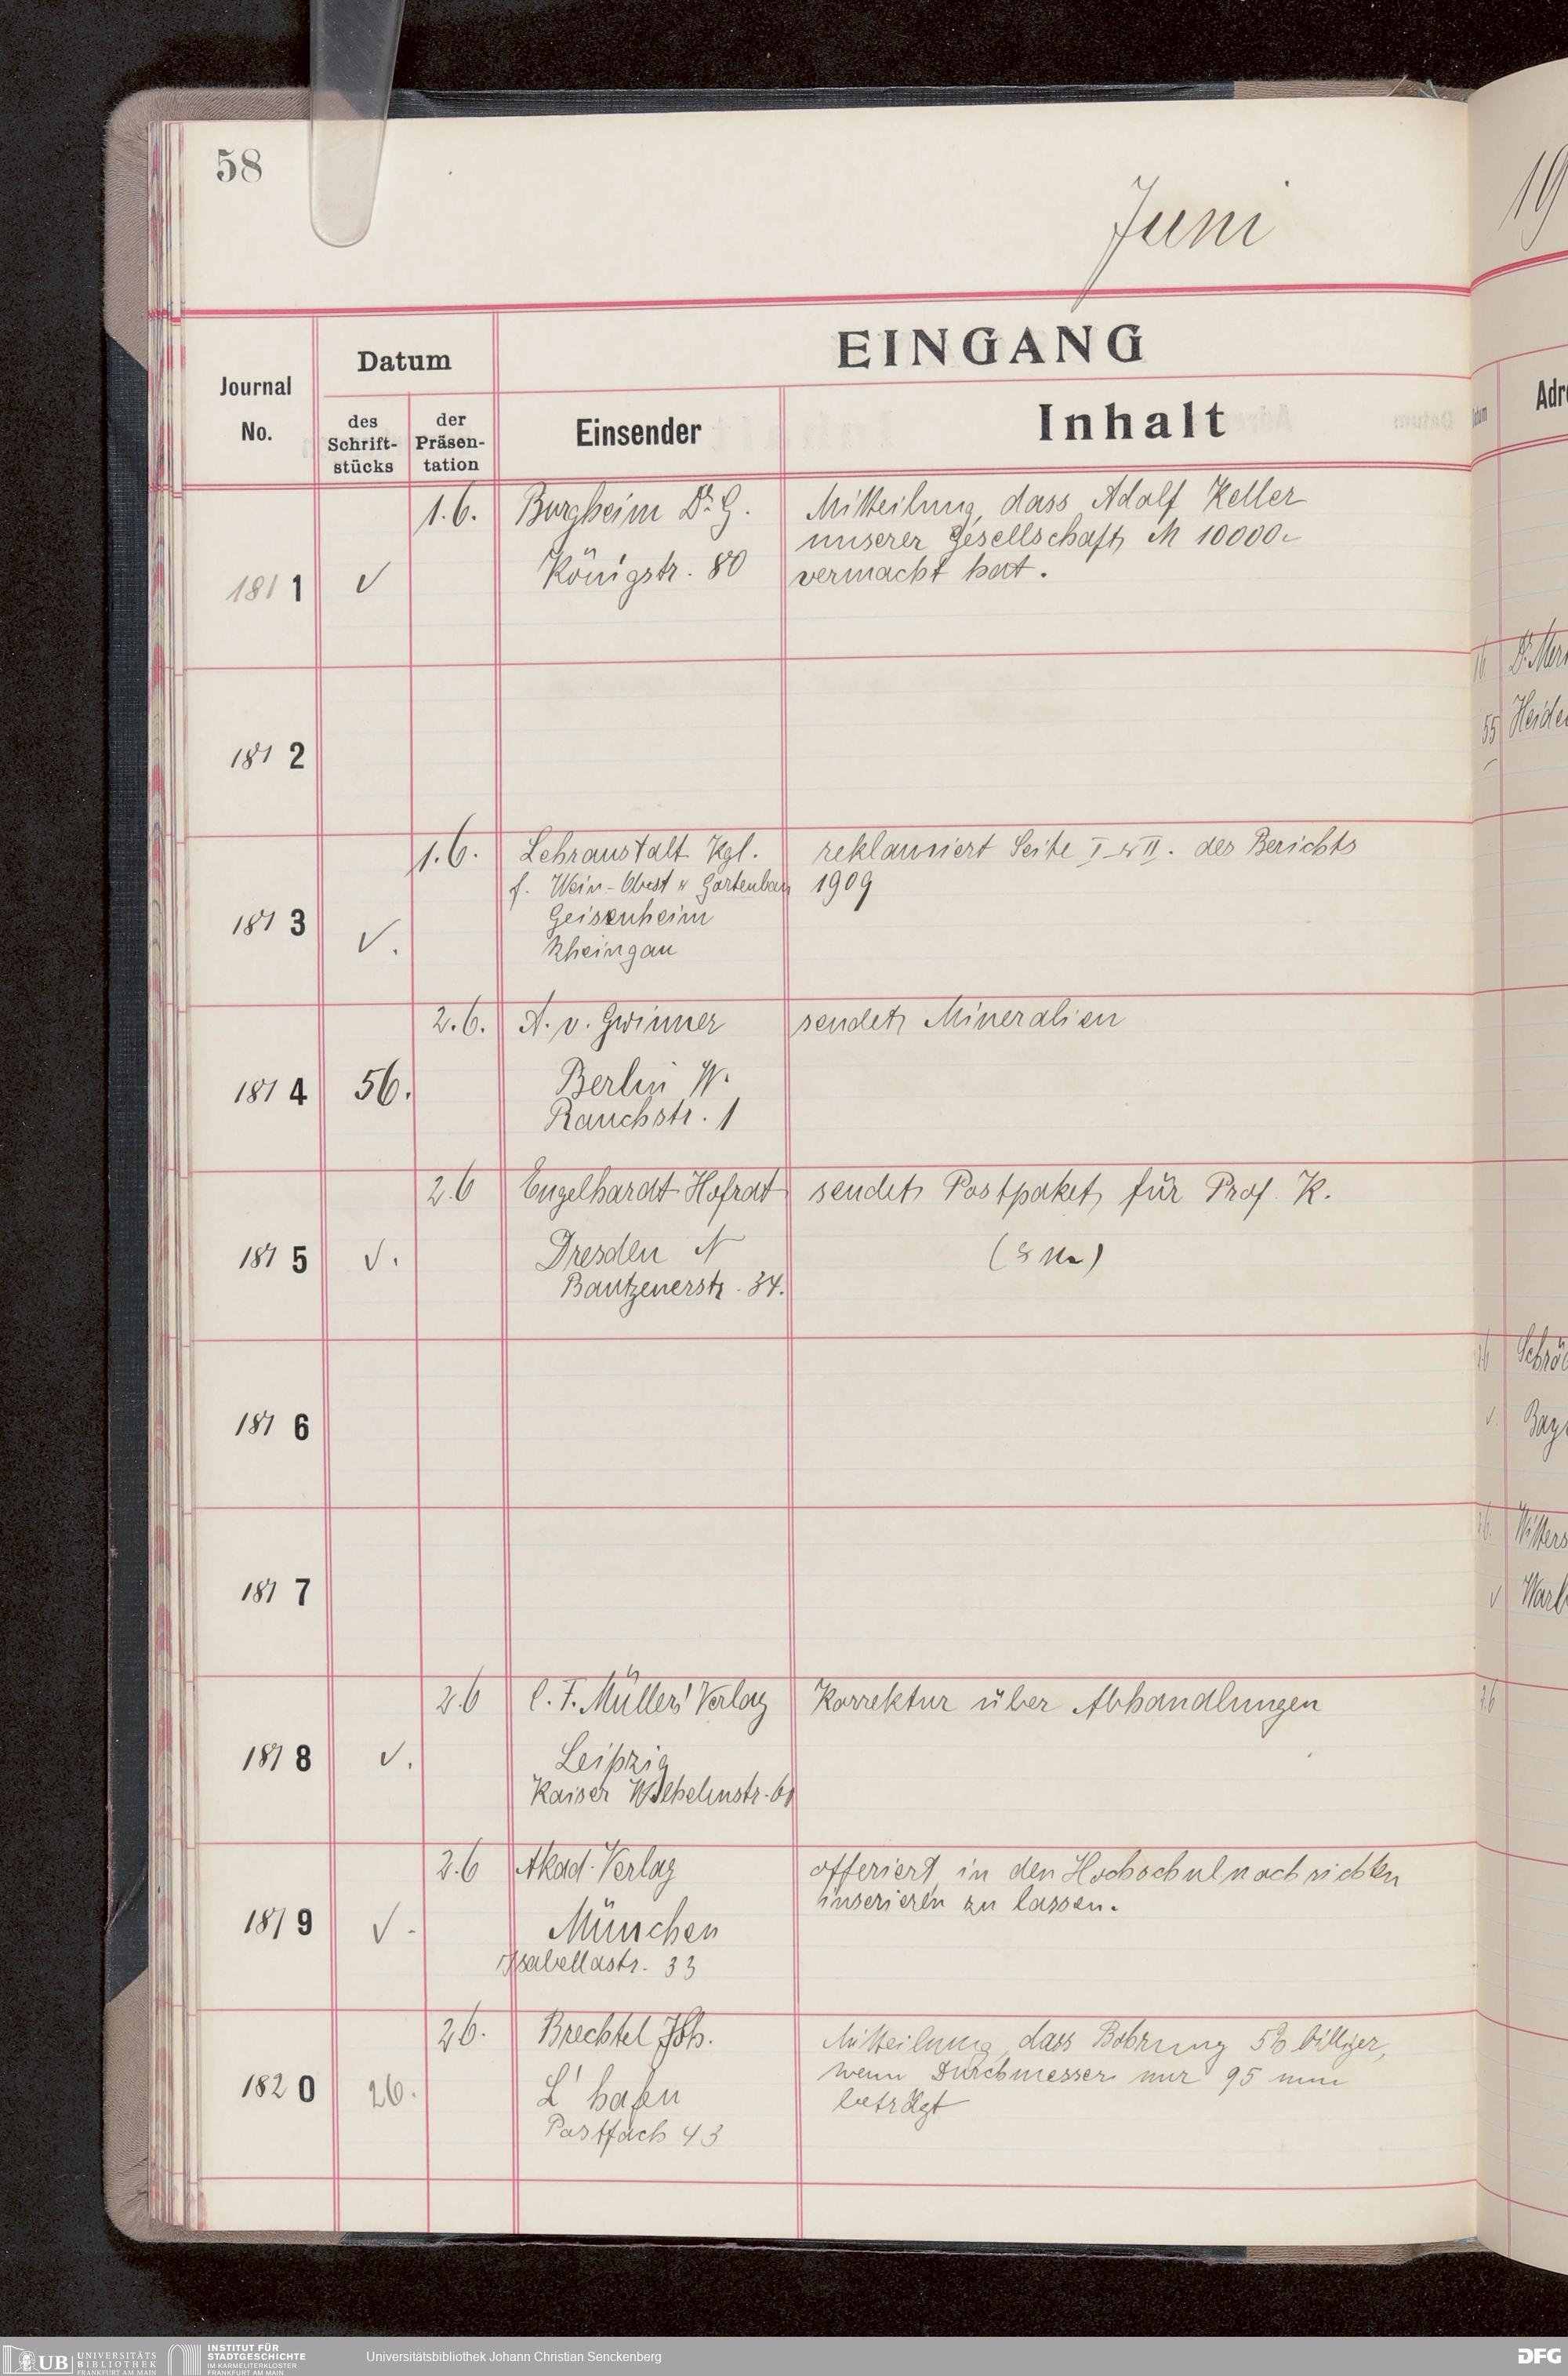 58
Juni
19
EINGANG
Datum
Journal
No.
des
Schrift-
stücks
der
Präsen-
tation
Einsender
Inhalt
Datum
Adre
1811 ✓ 1.6. Burgheim Dr. G. Mitteilung, dass Adolf Keller
unserer Gesellschaft M 10000.-
Königstr. 80 vermacht hat.
1812
1813 ✓. 1.6. Lehranstalt Kgl. reklamiert Seite I u II. des Berichts
f. Wein- Obst u Gartenbau 1909
Geisenheim
Rheingau
1814 56. 2.6. A. v. Gwinner sendet Mineralien
Berlin W.
Rauchstr. 1
1815 ✓. 2.6 Engelhardt Hofrat sendet Postpaket, für Prof. K.
Dresden N
Bautzenerstr. 34.
1816
1817
1818 ✓. 2.6 C. F. Müller' Verlag Korrektur über Abhandlungen
Leipzig
Kaiser Wilhelmstr. 61
1819 ✓. 2.6 Akad. Verlag offeriert, in den Hochschulnachrichten
inserieren zu lassen.
München
Isabellastr. 33
1820 26. 26. Brechtel Joh. Mitteilung, dass Bohrung 5% billiger,
wenn Durchmesser nur 95 mm
L'hafen beträgt
Postfach 43
55 Heide
UB UNIVERSITÄTS
BIBLIOTHEK
FRANKFURT AM MAIN
INSTITUT FÜR
STADTGESCHICHTE
IM KARMELITERKLOSTER
FRANKFURT AM MAIN
Universitätsbibliothek Johann Christian Senckenberg
DFG